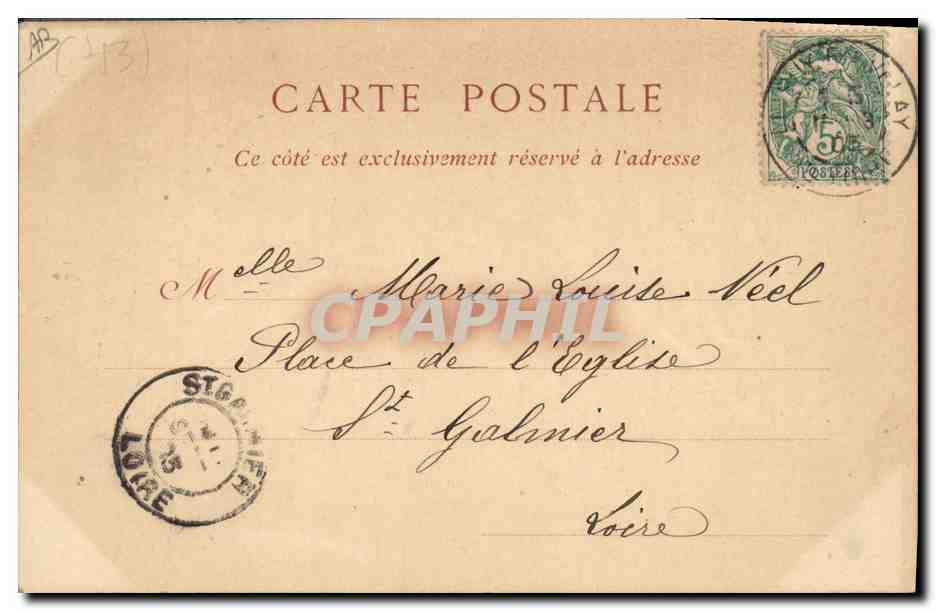 AB
(713)
CARTE POSTALE
Ce côté est exclusivement réservé à l'adresse
5
POSTES
Melle Marie Louise Néel
CPAPHIL
Place de l'Eglise
St Galmier
Loire
ST GALMIER
LOIRE